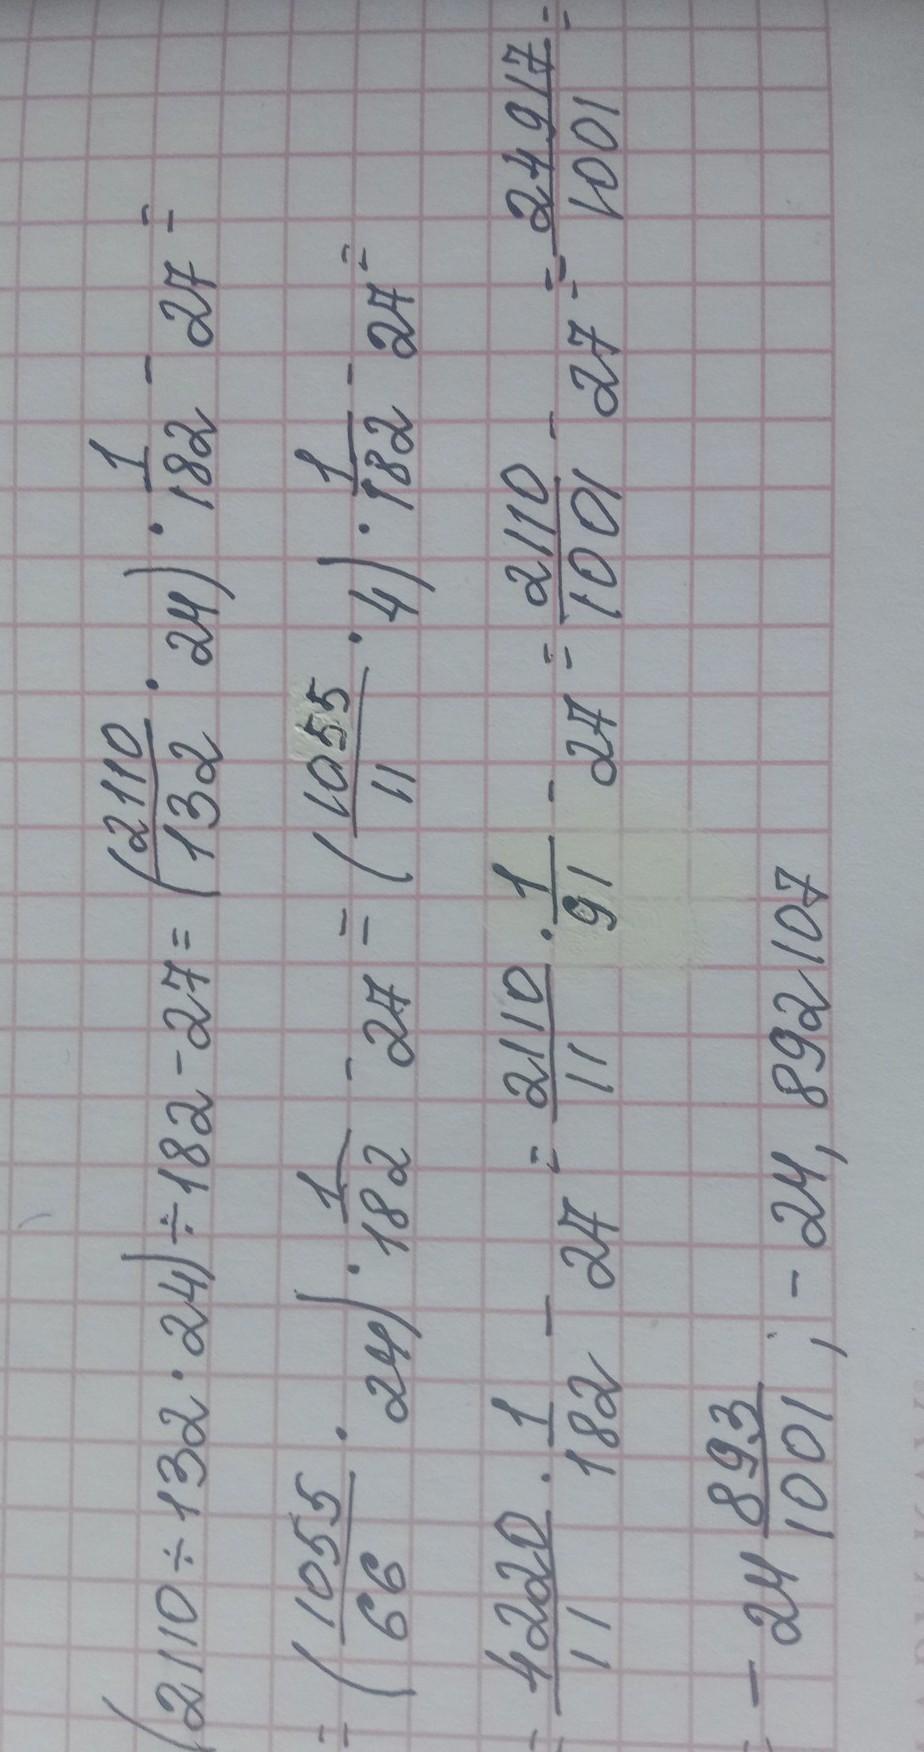 (2110÷132·24)÷182-27=(2110/132·24)·1/182-27=
=(1055/66·24)·1/182-27=(1055/11·4)·1/182-27=
=4220/11·1/182-27=2110/11·1/91-27=2110/1001-27==-24917/1001=
=-24 893/1001; -24,892107